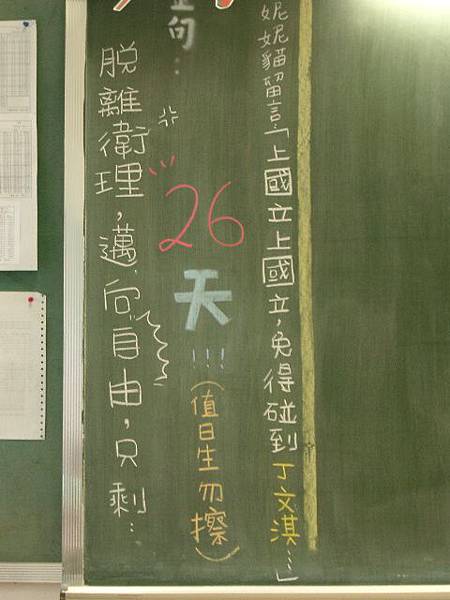 句…
脫離衛理，邁向自由，只剩…
26
天!!!
(值日生勿擦)
妮妮貓留言:「上國立上國立，免得碰到丁文淇…」